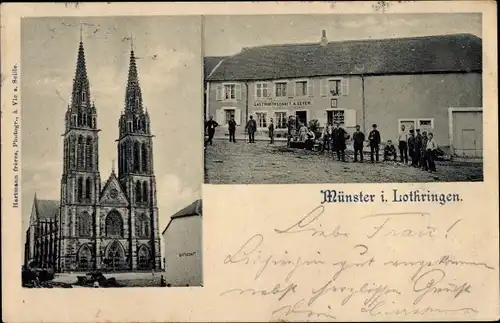 Hartmann frères, Photogr., à Vic a. Seille.
GASTWIRTHSCHAFT A. BEYER
Münster i. Lothringen.
Liebe Frau!
gut angekommen
nebst herzlichen Gruß
Dein